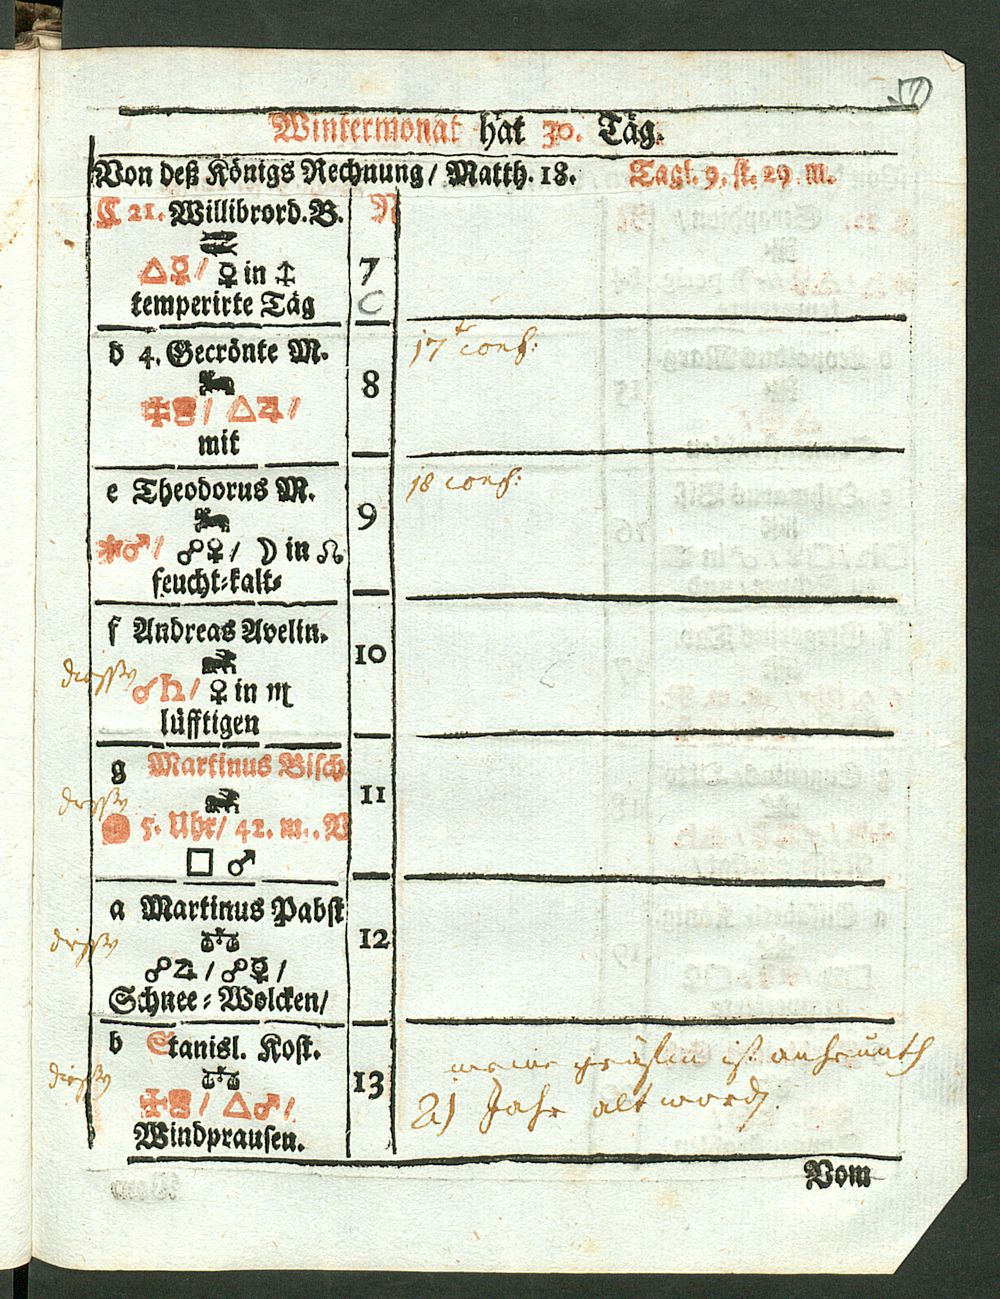 50
Wintermonat hat 30. Täg.
Von deß Königs Rechnung / Matth. 18. Tagl. 9. st. 29 m.
C 21. Willibrord. B. N
♓
△☿ / ♀ in ♐ 7
temperirte Täg C
d 4. Gecrönte M. 17t conf:
♈
8
△♃ /
mit
e Theodorus M. 18 conf:
♈ 9
✱♂ / ☍♀ / ☽ in ☊
feucht-kalt-
f Andreas Avelin.
10
♂♄ / ♀ in ♏
lüfftigen
g Martinus Bisch
11
5. Uhr / 42. m. . V
□ ♂
a Martinus Pabst
♎ 12
☍♃ / ☍☿ /
Schnee-Wolcken /
b Stanisl. Kost. meine gräfin ist anheunth
♎ 13
△♂ / 21 Jahr alt word.
Windprausen.
Vom